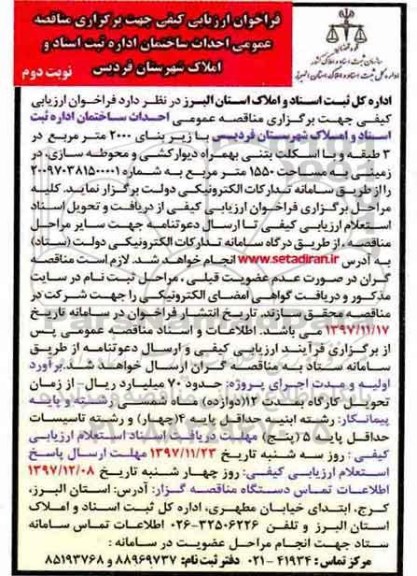 فراخوان ارزیابی کیفی جهت برگزاری مناقصه
عمومی احداث ساختمان اداره ثبت اسناد و
املاک شهرستان فردیس
نوبت دوم
قوه قضائیه
سازمان ثبت اسناد و املاک کشور
اداره کل ثبت اسناد و املاک استان البرز
اداره کل ثبت اسناد و املاک استان البرز در نظر دارد فراخوان ارزیابی
کیفی جهت برگزاری مناقصه عمومی احداث ساختمان اداره ثبت
اسناد و املاک شهرستان فردیس با زیر بنای ۲۰۰۰ متر مربع در
۳ طبقه و با اسکلت بتنی بهمراه دیوارکشی و محوطه سازی، در
زمینی به مساحت ۱۵۵۰ متر مربع به شماره ۲۰۰۹۷۰۳۸۱۵۰۰۰۰۱
را از طریق سامانه تدارکات الکترونیکی دولت برگزار نماید. کلیه
مراحل برگزاری فراخوان ارزیابی کیفی از دریافت و تحویل اسناد
استعلام ارزیابی کیفی تا ارسال دعوتنامه جهت سایر مراحل
مناقصه، از طریق درگاه سامانه تدارکات الکترونیکی دولت (ستاد)
به آدرس www.setadiran.ir انجام خواهد شد. لازم است مناقصه
گران در صورت عدم عضویت قبلی، مراحل ثبت نام در سایت
مذکور و دریافت گواهی امضای الکترونیکی را جهت شرکت در
مناقصه محقق سازند. تاریخ انتشار فراخوان در سامانه تاریخ
۱۳۹۷/۱۱/۱۷ می باشد. اطلاعات و اسناد مناقصه عمومی پس
از برگزاری فرآیند ارزیابی کیفی و ارسال دعوتنامه از طریق
سامانه ستاد به مناقصه گران ارسال خواهد شد. برآورد
اولیه و مدت اجرای پروژه: حدود ۷۰ میلیارد ریال - از زمان
تحویل کارگاه بمدت ۱۲(دوازده) ماه شمسی رشته و پایه
پیمانکار: رشته ابنیه حداقل پایه ۴(چهار) و رشته تاسیسات
حداقل پایه ۵ (پنج) مهلت دریافت اسناد استعلام ارزیابی
کیفی: روز سه شنبه تاریخ ۱۳۹۷/۱۱/۲۳ مهلت ارسال پاسخ
استعلام ارزیابی کیفی: روز چهار شنبه تاریخ ۱۳۹۷/۱۲/۰۸
اطلاعات تماس دستگاه مناقصه گزار: آدرس: استان البرز،
کرج، ابتدای خیابان مطهری، اداره کل ثبت اسناد و املاک
استان البرز و تلفن ۳۲۵۰۶۲۲۶-۰۲۶ اطلاعات تماس سامانه
ستاد جهت انجام مراحل عضویت در سامانه:
مرکز تماس: ۴۱۹۳۴-۰۲۱ دفتر ثبت نام: ۸۸۹۶۹۷۳۷ و ۸۵۱۹۳۷۶۸